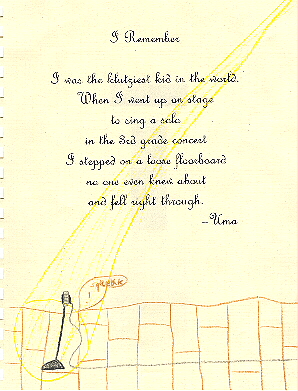 I Remember
I was the klutziest kid in the world.
When I went up on stage
to sing a solo
in the 3rd grade concert
I stepped on a loose floorboard
no one even knew about
and fell right through.
--Uma